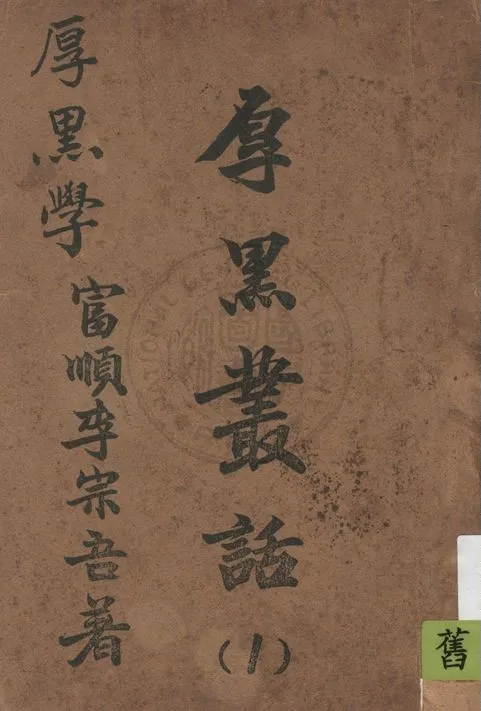 厚黑叢話
(1)
厚黑學
富順李宗吾著
舊